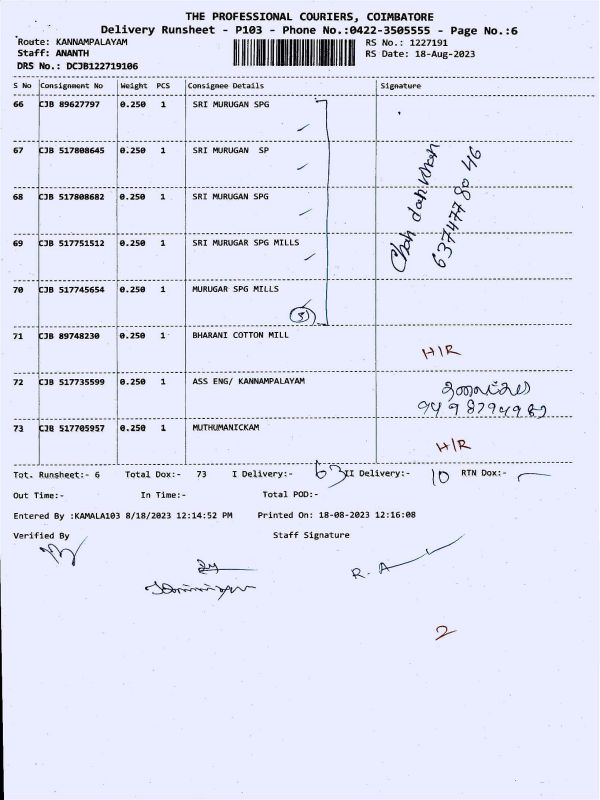 THE PROFESSIONAL COURIERS, COIMBATORE
Delivery Runsheet - P103 - Phone No.:0422-3505555 - Page No.:6
Route: KANNAMPALAYAM RS No.: 1227191
Staff: ANANTH RS Date: 18-Aug-2023
DRS No.: DCJB122719106
S No Consignment No Weight PCS Consignee Details Signature
66 CJB 89627797 0.250 1 SRI MURUGAN SPG
67 CJB 517808645 0.250 1 SRI MURUGAN SP
68 CJB 517808682 0.250 1 SRI MURUGAN SPG
69 CJB 517751512 0.250 1 SRI MURUGAR SPG MILLS
6374777 80 46
70 CJB 517745654 0.250 1 MURUGAR SPG MILLS
5
71 CJB 89748230 0.250 1 BHARANI COTTON MILL
H/R
72 CJB 517735599 0.250 1 ASS ENG/ KANNAMPALAYAM
73 CJB 517705957 0.250 1 MUTHUMANICKAM
H/R
Tot. Runsheet:- 6 Total Dox:- 73 I Delivery:- 63 II Delivery:- 10 RTN Dox:-
Out Time:- In Time:- Total POD:-
Entered By :KAMALA103 8/18/2023 12:14:52 PM Printed On: 18-08-2023 12:16:08
Verified By Staff Signature
R. A
2